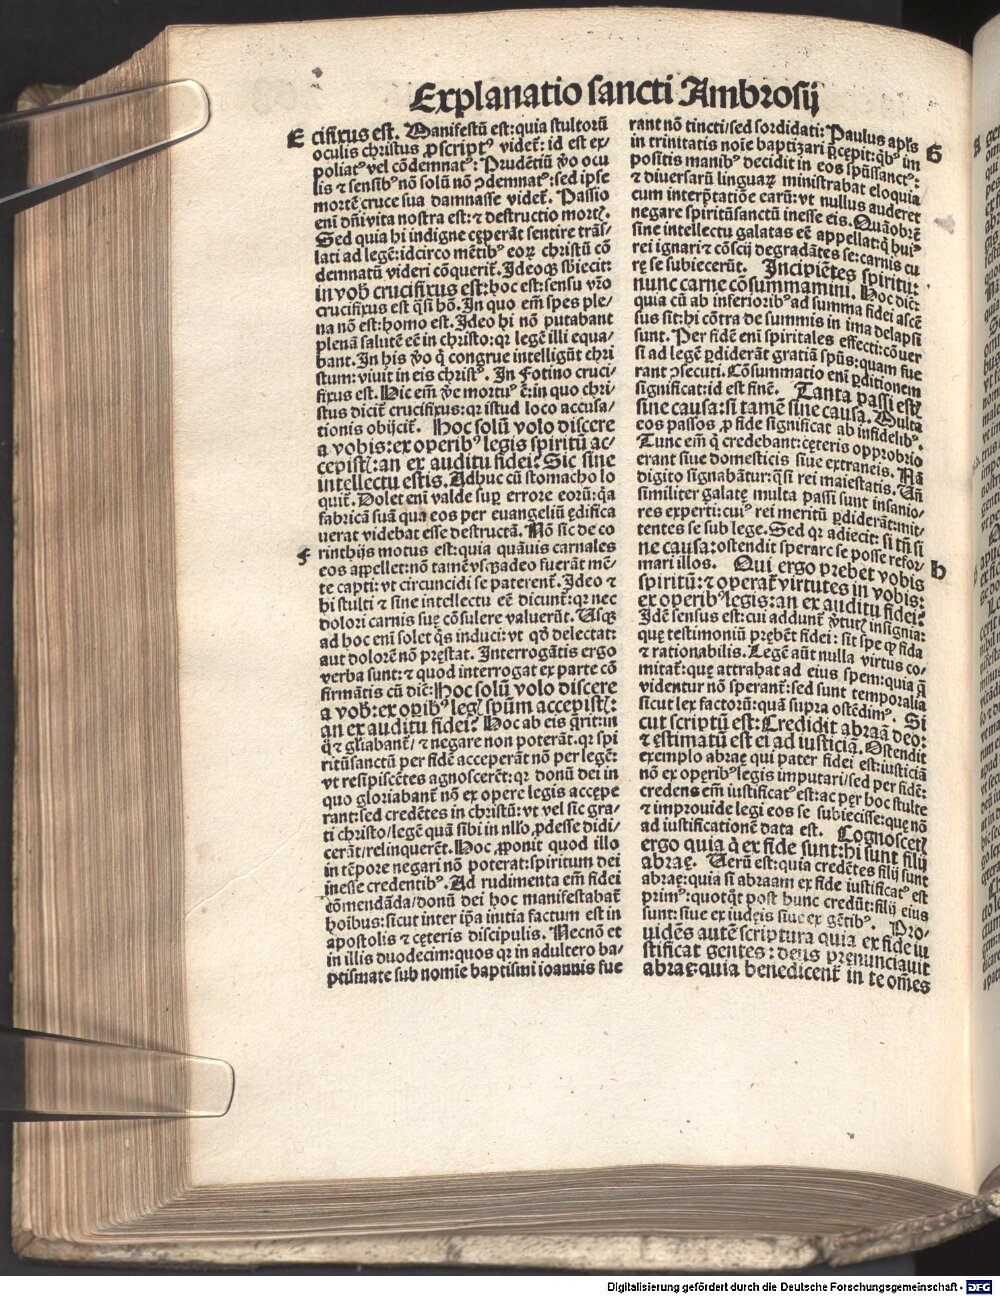 Explanatio sancti Ambrosij
E
cifixus est. Manifestū est: quia stultorū
oculis christus ꝓscriptꝰ videt᷑: id est ex-
poliatꝰ vel cōdemnatꝰ: Prudētiū ꝟo ocu
lis ⁊ sensibꝰ nō solū nō ꝯdemnatꝰ: sed ipse
mortē cruce sua damnasse videt᷑. Passio
eni dn̄i vita nostra est: ⁊ destructio mortꝭ.
Sed quia hi indigne cęperāt sentire trās/
lati ad legē: idcirco mētibꝰ eoꝝ christū cō
demnatū videri cōquerit᷑. Ideoqꝫ sbiecit:
in vob̄ crucifixus est: hoc est: sensu vr̄o
crucifixus est q̄si hō. In quo em̄ spes ple-
na nō est: homo est. Ideo hi nō putabant
plenā salutē eē in christo: qꝛ legē illi equa/
bant. In his ꝟo q̄ congrue intelligūt chri
stum: viuit in eis christꝰ. In Fotino cruci/
fixus est. Hic em̄ ꝟe mortuꝰ ē: in quo chri/
stus dicit᷑ crucifixus: qꝛ istud loco accusa/
tionis obijcit᷑. Hoc solū volo discere
a vobis: ex operibꝰ legis spiritū ac/
cepistꝭ: an ex auditu fidei? Sic sine
intellectu estis. Adhuc cū stomacho lo
quit᷑. Dolet eni valde suꝑ errore eorū: q̄a
fabricā suā qua eos per euangeliū ędifica
uerat videbat esse destructā. Nō sic de co
F
rinthijs motus est: quia quāuis carnales
eos appellet: nō tamē vsqꝫadeo fuerāt mē/
te capti: vt circuncidi se paterent᷑. Ideo ⁊
hi stulti ⁊ sine intellectu eē dicunt᷑: qꝛ nec
dolori carnis suę cōsulere valuerūt. Usqꝫ
ad hoc eni solet q̄s induci: vt qd̄ delectat:
aut dolorē nō pręstat. Interrogātis ergo
verba sunt: ⁊ quod interrogat ex parte cō
firmātis cū dic̄: Hoc solū volo discere
a vob̄: ex oꝑibꝰ legꝭ spūm accepistꝭ:
an ex auditu fidei? Hoc ab eis q̄rit: in
q̄ ⁊ gl̄iabant᷑/ ⁊ negare non poterāt. qꝛ spi
ritūsanctū per fidē acceperāt nō per legē:
vt resipiscētes agnoscerēt: qꝛ donū dei in
quo gloriabant᷑ nō ex opere legis accępe
rant: sed credētes in christū: vt vel sic gra/
ti christo/ legē quā sibi in nllo ꝓdesse didi/
cerāt/ relinquerēt. Hoc ꝓponit quod illo
in tēpore negari nō poterat: spiritum dei
inesse credentibꝰ. Ad rudimenta em̄ fidei
cōmendāda/ donū dei hoc manifestabat᷑
hoībus: sicut inter ip̄a initia factum est in
apostolis ⁊ cęteris discipulis. Necnō et
in illis duodecim: quos qꝛ in adultero ba-
ptismate sub nomīe baptismi ioannis fue
rant nō tincti/ sed sordidati: Paulus apl̄s
in trinitatis noīe baptizari p̄cepit: qb̄ꝰ im
G
positis manibꝰ decidit in eos spūssanctꝰ:
⁊ diuersarū linguaꝝ ministrabat eloquia
cum interp̄tatiōe earū: vt nullus auderet
negare spiritūsanctū inesse eis. Quāobrē
sine intellectu galatas eē appellat: q̄ huiꝰ
rei ignari ⁊ cōscij degradātes se: carnis cu
rę se subiecerūt. Incipiētes spiritu:
nunc carne cōsummamini. Hoc dic̄:
quia cū ab inferioribꝰ ad summa fidei ascē
sus sit: hi cōtra de summis in ima delapsi
sunt. Per fidē eni spiritales effecti: cōuer
si ad legē ꝑdiderāt gratiā spūs: quam fue
rant ꝯsecuti. Cōsummatio eni ꝑditionem
significat: id est finē. Tanta passi estꝭ
sine causa: si tamē sine causa. Multa
eos passos ꝓ fide significat ab infidelibꝰ.
Tunc em̄ q̄ credebant: cęteris opprobrio
erant siue domesticis siue extraneis. Nā
digito signabātur: q̄si rei maiestatis. Uñ
similiter galatę multa passi sunt insanio/
res experti: cuiꝰ rei meritū ꝑdiderāt: mit/
tentes se sub lege. Sed qꝛ adiecit: si tn̄ si
ne causa: ostendit sperare se posse refor/
H
mari illos. Qui ergo prebet vobis
spiritū: ⁊ operat᷑ virtutes in vobis:
ex operibꝰ legis: an ex auditu fidei?
Idē sensus est: cui addunt᷑ ꝟtutꝭ insignia:
quę testimoniū prębēt fidei: sit spe qꝫ fida
⁊ rationabilis. Legē aūt nulla virtus co/
mitat᷑: quę attrahat ad eius spem: quia q̄
videntur nō sperant᷑: sed sunt temporalia
sicut lex factorū: quā supra ostēdimꝰ. Si
cut scriptū est: Credidit abraā deo:
⁊ ęstimatū est ei ad iusticiā. Ostendit
exemplo abraę qui pater fidei est: iusticiā
nō ex opęribꝰ legis imputari/ sed per fidē:
credens em̄ iustificatꝰ est: ac pęr hoc stulte
⁊ improuide legi eos se subiecisse: quę nō
ad iustificationē data est. Cognoscetꝭ
ergo quia q̄ ex fide sunt: hi sunt filij
abraę. Uerū est: quia credētes filij sunt
abraę: quia si abraam ex fide iustificatꝰ est
primꝰ: quotqt̄ post hunc credūt: filij eius
sunt: siue ex iudęis siue ex gētibꝰ. Pro/
uidēs autē scriptura quia ex fide iu
stificat gentes: deus prenunciauit
abraę: quia benedicent᷑ in te om̄es
Digitalisierung gefördert durch die Deutsche Forschungsgemeinschaft - DFG